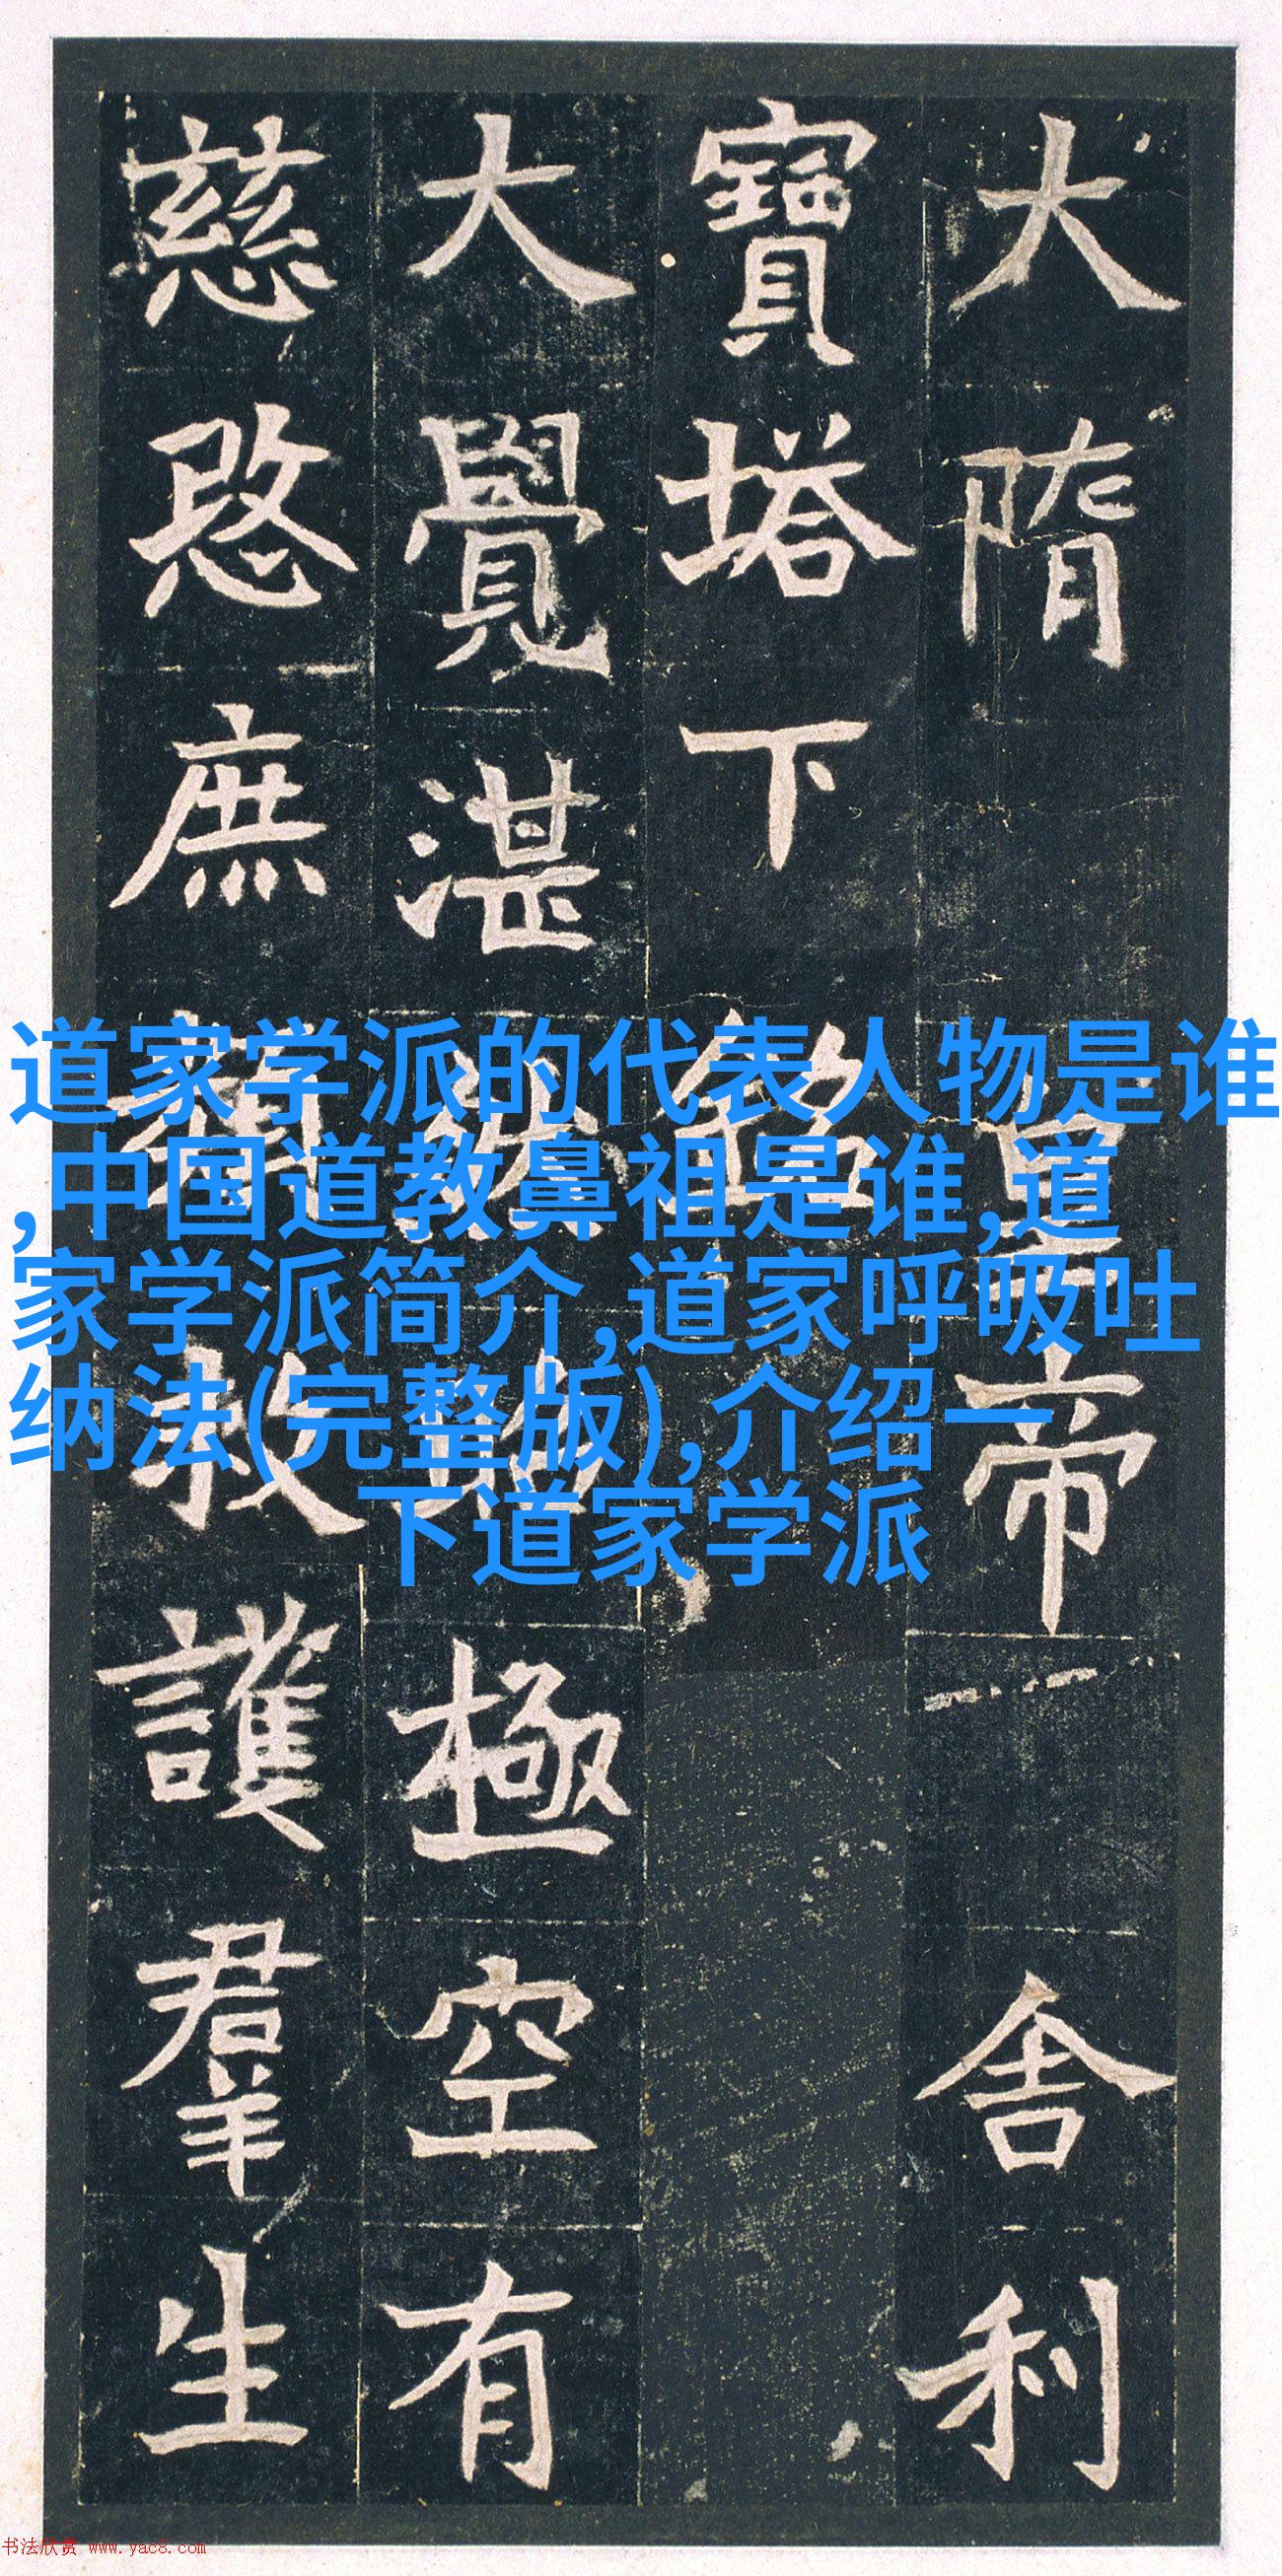 大隋皇帝舍利
寶塔下銘
大覺湛極空有
慈愍庶類救護羣生
道家学派的代表人物是谁
,中国道教鼻祖是谁,道
家学派简介,道家呼吸吐
纳法(完整版),介绍一
下道家学派
书法欣赏 www.yac8.com